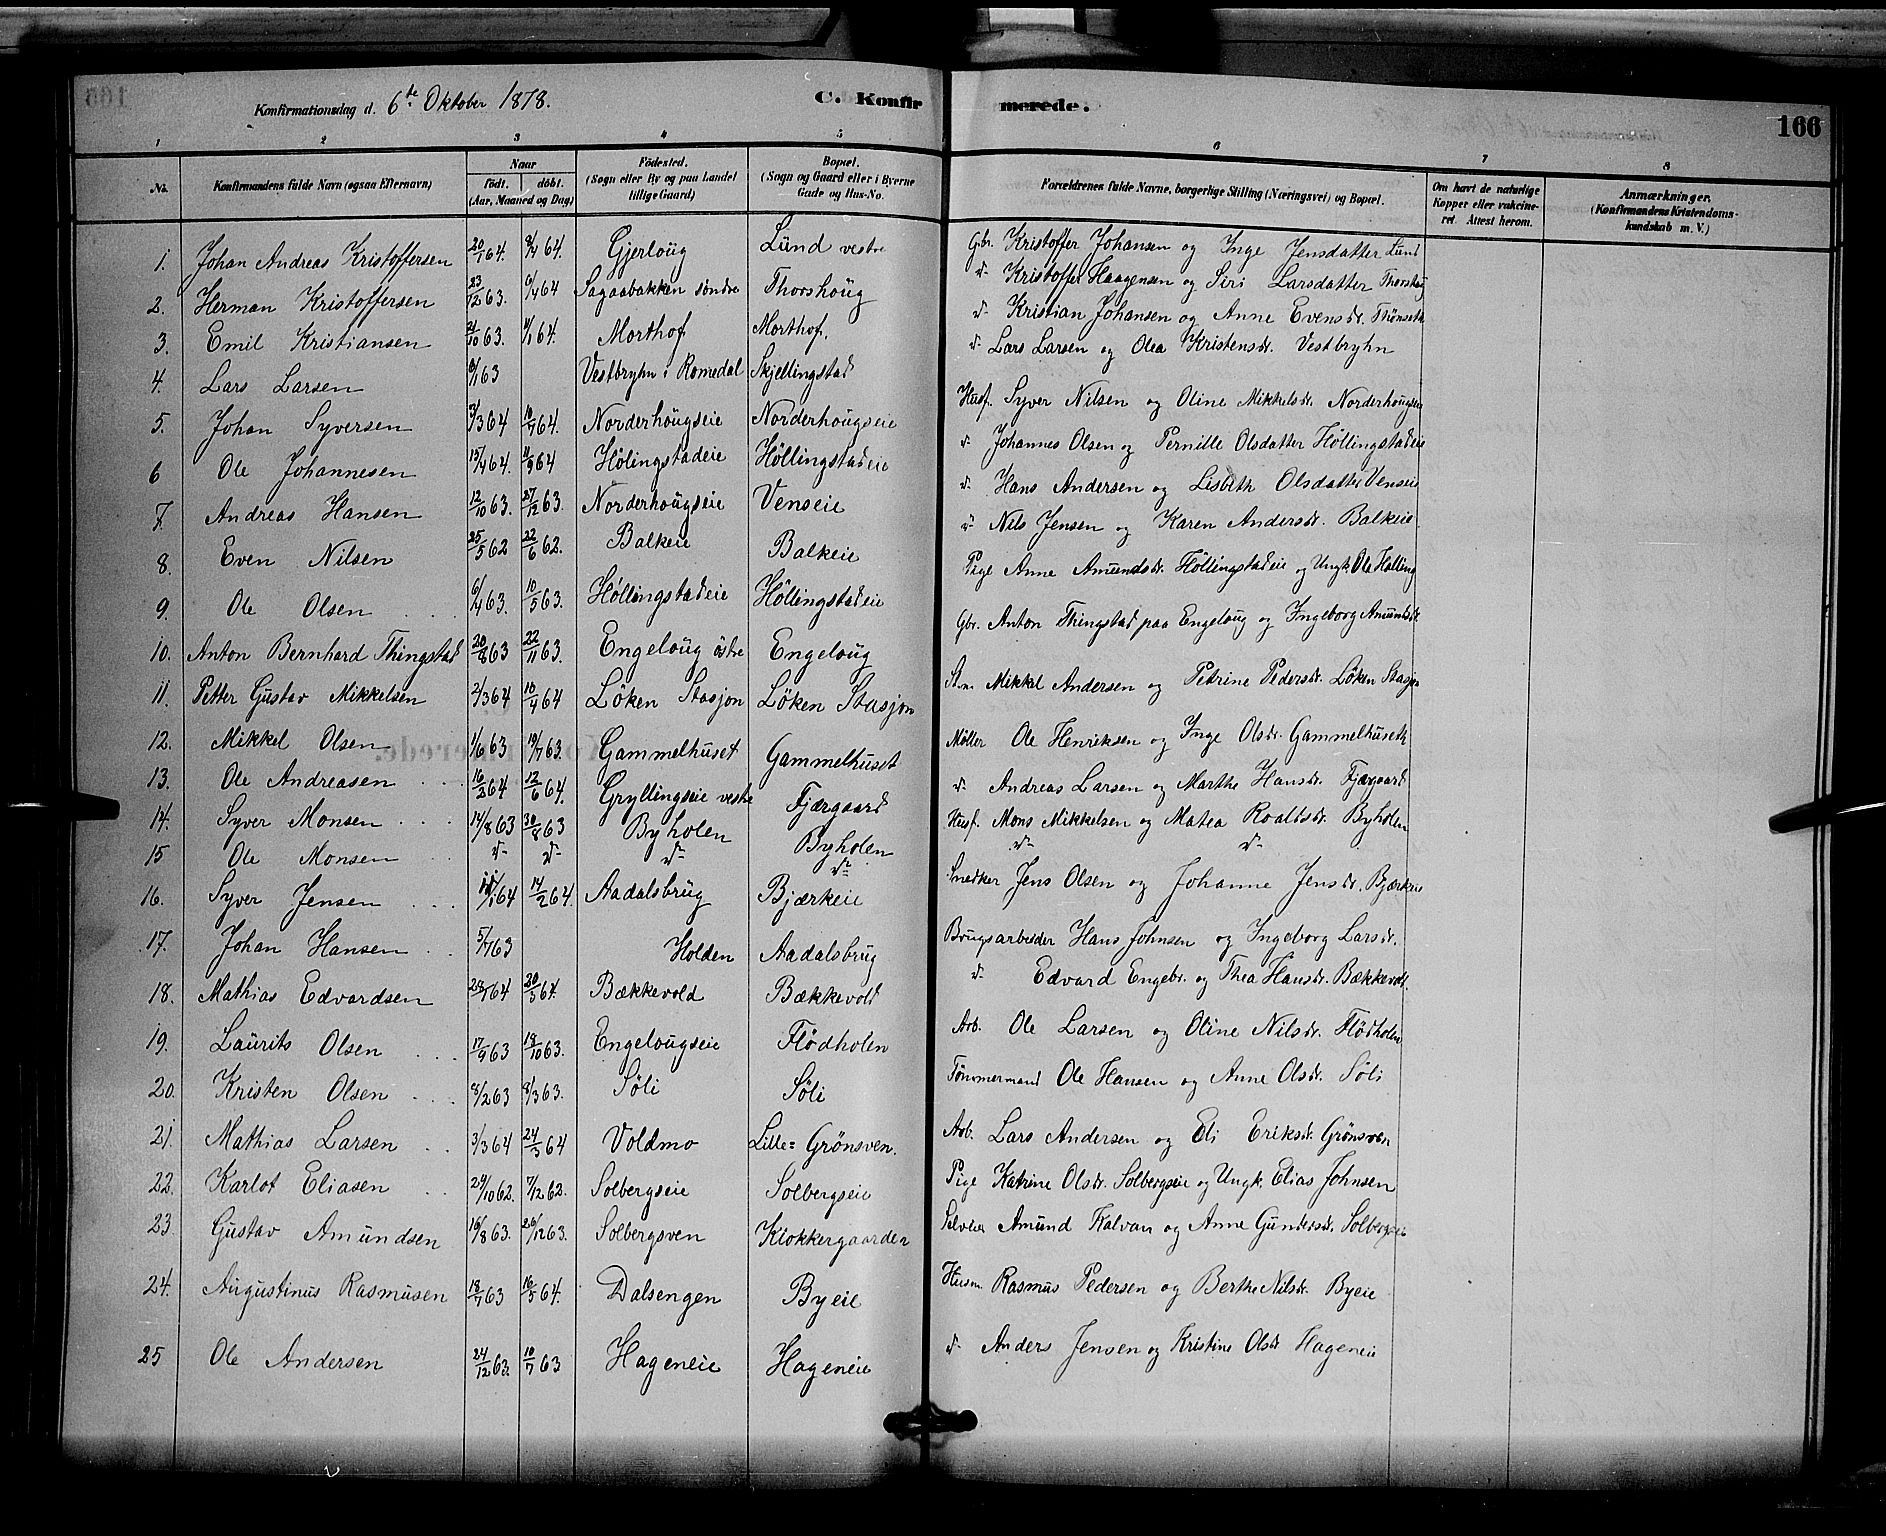 Konfirmationsdag d. 6te Oktober 1878. C. Konfirmerede. 166
1 2 3 4 5 6 7 8
No. Konfirmandens fulde Navn (ogsaa Efternavn) Naar født. døbt. (Aar, Maaned og Dag) Fødested. (Sogn eller By og paa Landet tillige Gaard) Bopæl. (Sogn og Gaard eller i Byerne Gade og Hus-No. Forældrenes fulde Navne, borgerlige Stilling (Næringsvei) og Bopæl. Om havt de naturlige Kopper eller vakcineret. Attest herom. Anmærkninger. (Konfirmandens Kristendomskundskab m. V.)
1. Johan Andreas Kristoffersen 20/1 64. 3/4 64. Gjerloug Lund vestre Gbr. Kristoffer Johansen og Inge Jensdatter Lund
2. Herman Kristoffersen 23/12 63. 6/4 64 Sagaabakken søndre Thorshoug d- Kristoffer Haagensen og Siri Larsdatter Thorshoug
3. Emil Kristiansen 21/10 63. 1/1 64. Morthof Morthof. d- Kristian Johansen og Anne Evensdr.
4. Lars Larsen 6/1 63 Vestbryhn i Romedal Skjellingstad d- Lars Larsen og Olea Kristensdr. Vestbryhn
5. Johan Syversen 3/3 64 10/7 64. Norderhougseie Norderhougseie Husf. Syver Nilsen og Oline Mikkelsdr. Norderhougseie
6 Ole Johannesen 15/4 64. 11/9 64 Hølingstadeie Høllingstadeie d- Johannes Olsen og Pernille Olsdatter Høllingstadeie
7. Andreas Hansen 12/10 63. 27/12 63. Norderhougseie Venseie d- Hans Andersen og Lisbeth Olsdatter Venseie
8. Even Nilsen 25/5 62 22/6 62. Balkeie Balkeie d- Nils Jensen og Karen Andersdr. Balkeie
9. Ole Olsen 6/4 63. 10/5 63. Høllingstadeie Høllingstadeie Pige Anne Amundsdr. Høllingstadeie og Ungk. Ole Hølling
10. Anton Bernhard Thingstad 20/8 63 22/11 63. Engeloug østre Engeloug Gbr. Anton Thingstad paa Engeloug og Ingeborg Amundsdr.
11. Petter Gustav Mikkelsen 2/3 64 10/4 64 Løken Stasjon Løken Stasjon Mikkel Andersen og Petrine Pedersdr. Løken Stasjon
12. Mikkel Olsen 1/6 63 19/7 63. Gammelhuset Gammelhuset Møller Ole Henriksen og Inge Olsdr. Gammelhuseth
13. Ole Andreasen 16/2 64 12/6 64. Gryllingseie vestre Fjærgaard d- Andreas Larsen og Marthe Hansdr. Fjærgaard
14. Syver Monsen 14/8 63 30/8 63 Byholen Byholen Husf. Mons Mikkelsen og Matea Roaldsdr. Byholen
15 Ole Monsen d- d- d- d- d- d-
16. Syver Jensen 11/1 64 14/2 64. Aadalsbrug Bjærkeie Snedker Jens Olsen og Johanne Jensdr. Bjærkeie
17. Johan Hansen 5/7 63 Holden Aadalsbrug Brugsarbeider Hans Johnsen og Ingeborg Larsdr.
18. Mathias Edvardsen 64 20/3 64. Bækkevold Bækkevold d- Edvard Engebr. og Thea Hansdr. Bækkevold
19. Laurits Olsen 17/9 63 18/10 63. Engelougseie Flødholen Arb. Ole Larsen og Oline Nilsdr. Flødholen
20. Kristen Olsen 8/2 63 8/3 63. Søli Søli Tømmermand Ole Hansen og Anne Olsdr. Søli
21. Mathias Larsen 3/3 64 24/3 64 Voldmo Lille= Grønsven. Arb. Lars Andersen og Eli Eriksdr. Grønsven
22. Karlot Eliasen 29/10 62. 7/12 62. Solbergseie Solbergseie Pige Katrine Olsdr. Solbergseie og Ungk. Elias Johnsen
23. Gustav Amundsen 16/8 63. 26/12 63. Solbergsven Klokkergaarden Selveier Amund Kalvan og Anne Gundersdr. Solbergseie
24. Augustinus Rasmusen 18/7 63 16/5 64. Dalsengen Byeie Husm. Rasmus Pedersen og Berthe Nilsdr. Byeie
25 Ole Andersen 24/12 63. 10/7 63 Hageneie Hageneie d- Anders Jensen og Kristine Olsdr Hageneie